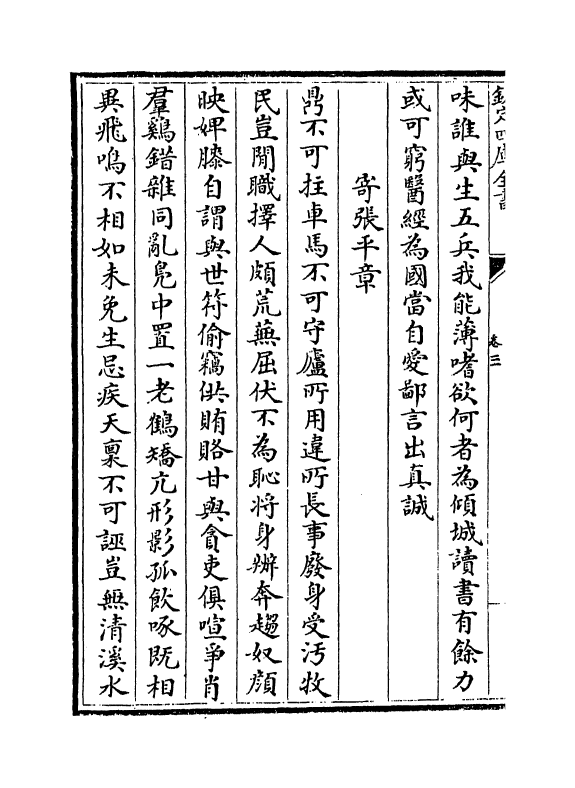 欽定四庫全書
卷三
味誰與生五兵我能薄嗜欲何者為傾城讀書有餘力
或可窮醫經為國當自愛鄙言出真誠
寄張平章
鼎不可拄車馬不可守廬所用違所長事廢身受汚牧
民豈閒職擇人頗荒蕪屈伏不為恥將身辦奔趨奴顔
映婢膝自謂與世符偷竊供賄賂甘與貪吏俱喧爭肖
羣鷄錯雜同亂鳧中置一老鶴矯亢形影孤飲啄既相
異飛鳴不相如未免生忌疾天稟不可誣豈無清溪水